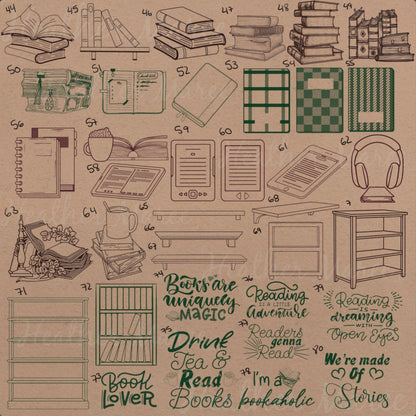 44
45
46
47
48
49
50
51
52
53
54
55
56
57
58
59
60
61
62
63
64
65
66
67
71
72
74
Books are
uniquely
MAGIC
75
Drink
Tea &
Read
Books
73
Book
LOVER
Reading
is a little
Adventure
77
Readers
gonna
Read
78
I'm a
bookaholic
79
Reading
IS
dreaming
WITH
Open Eyes
80
We're made
Of
Stories